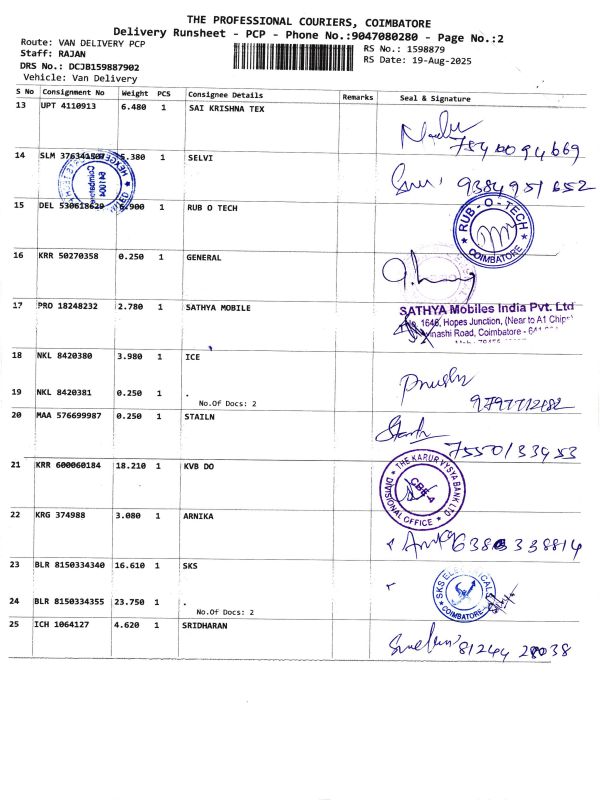 THE PROFESSIONAL COURIERS, COIMBATORE
Delivery Runsheet - PCP - Phone No.:9047080280 - Page No.:2
Route: VAN DELIVERY PCP
Staff: RAJAN
DRS No.: DCJB159887902
Vehicle: Van Delivery
RS No.: 1598879
RS Date: 19-Aug-2025
S No Consignment No Weight PCS Consignee Details Remarks Seal & Signature
13 UPT 4110913 6.480 1 SAI KRISHNA TEX
7540094669
14 SLM .380 1 SELVI
9384951652
15 DEL 530618629 .900 1 RUB O TECH
RUB-O-TECH
COIMBATORE
16 KRR 50270358 0.250 1 GENERAL
17 PRO 18248232 2.780 1 SATHYA MOBILE
SATHYA Mobiles India Pvt. Ltd
1646, Hopes Junction, (Near to A1 Chips)
Road, Coimbatore - 641
18 NKL 8420380 3.980 1 ICE
19 NKL 8420381 0.250 1 .
No.Of Docs: 2
20 MAA 576699987 0.250 1 STAILN
7550133953
21 KRR 600060184 18.210 1 KVB DO
THE KARUR VYSYA BANK LTD
CBE-4
DIVISIONAL OFFICE
22 KRG 374988 3.080 1 ARNIKA
23 BLR 8150334340 16.610 1 SKS
SKS
COIMBATORE
24 BLR 8150334355 23.750 1 .
No.Of Docs: 2
25 ICH 1064127 4.620 1 SRIDHARAN
81244 28038